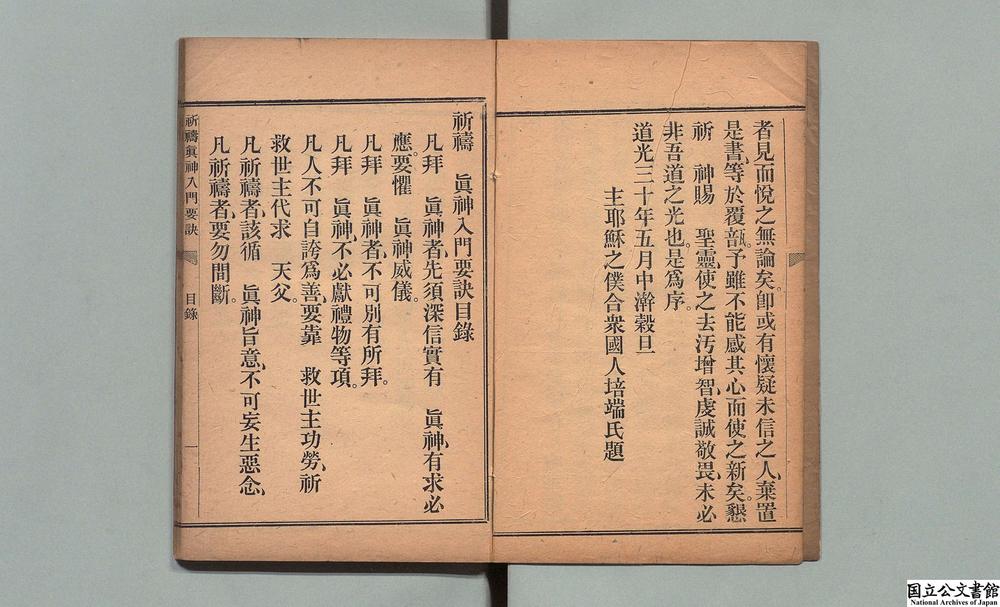 者見而悅之無論矣。卽或有懷疑未信之人、棄置
是書、等於覆瓿、予雖不能感其心而使之新矣。懇
祈　神賜　聖靈、使之去汚增智、虔誠敬畏、未必
非吾道之光也。是爲序。
道光三十年五月中澣穀旦
主耶穌之僕合衆國人培端氏題
祈禱　眞神入門要訣目錄
凡拜　眞神者、先須深信實有　眞神、有求必
應。要懼　眞神威儀。
凡拜　眞神者、不可別有所拜。
凡拜　眞神、不必獻禮物等項。
凡人不可自誇爲善、要靠　救世主功勞、祈
救世主代求　天父。
凡祈禱者、該循　眞神旨意、不可妄生惡念、
凡祈禱者、要勿間斷。
祈禱眞神入門要訣　目錄　一
国立公文書館
National Archives of Japan